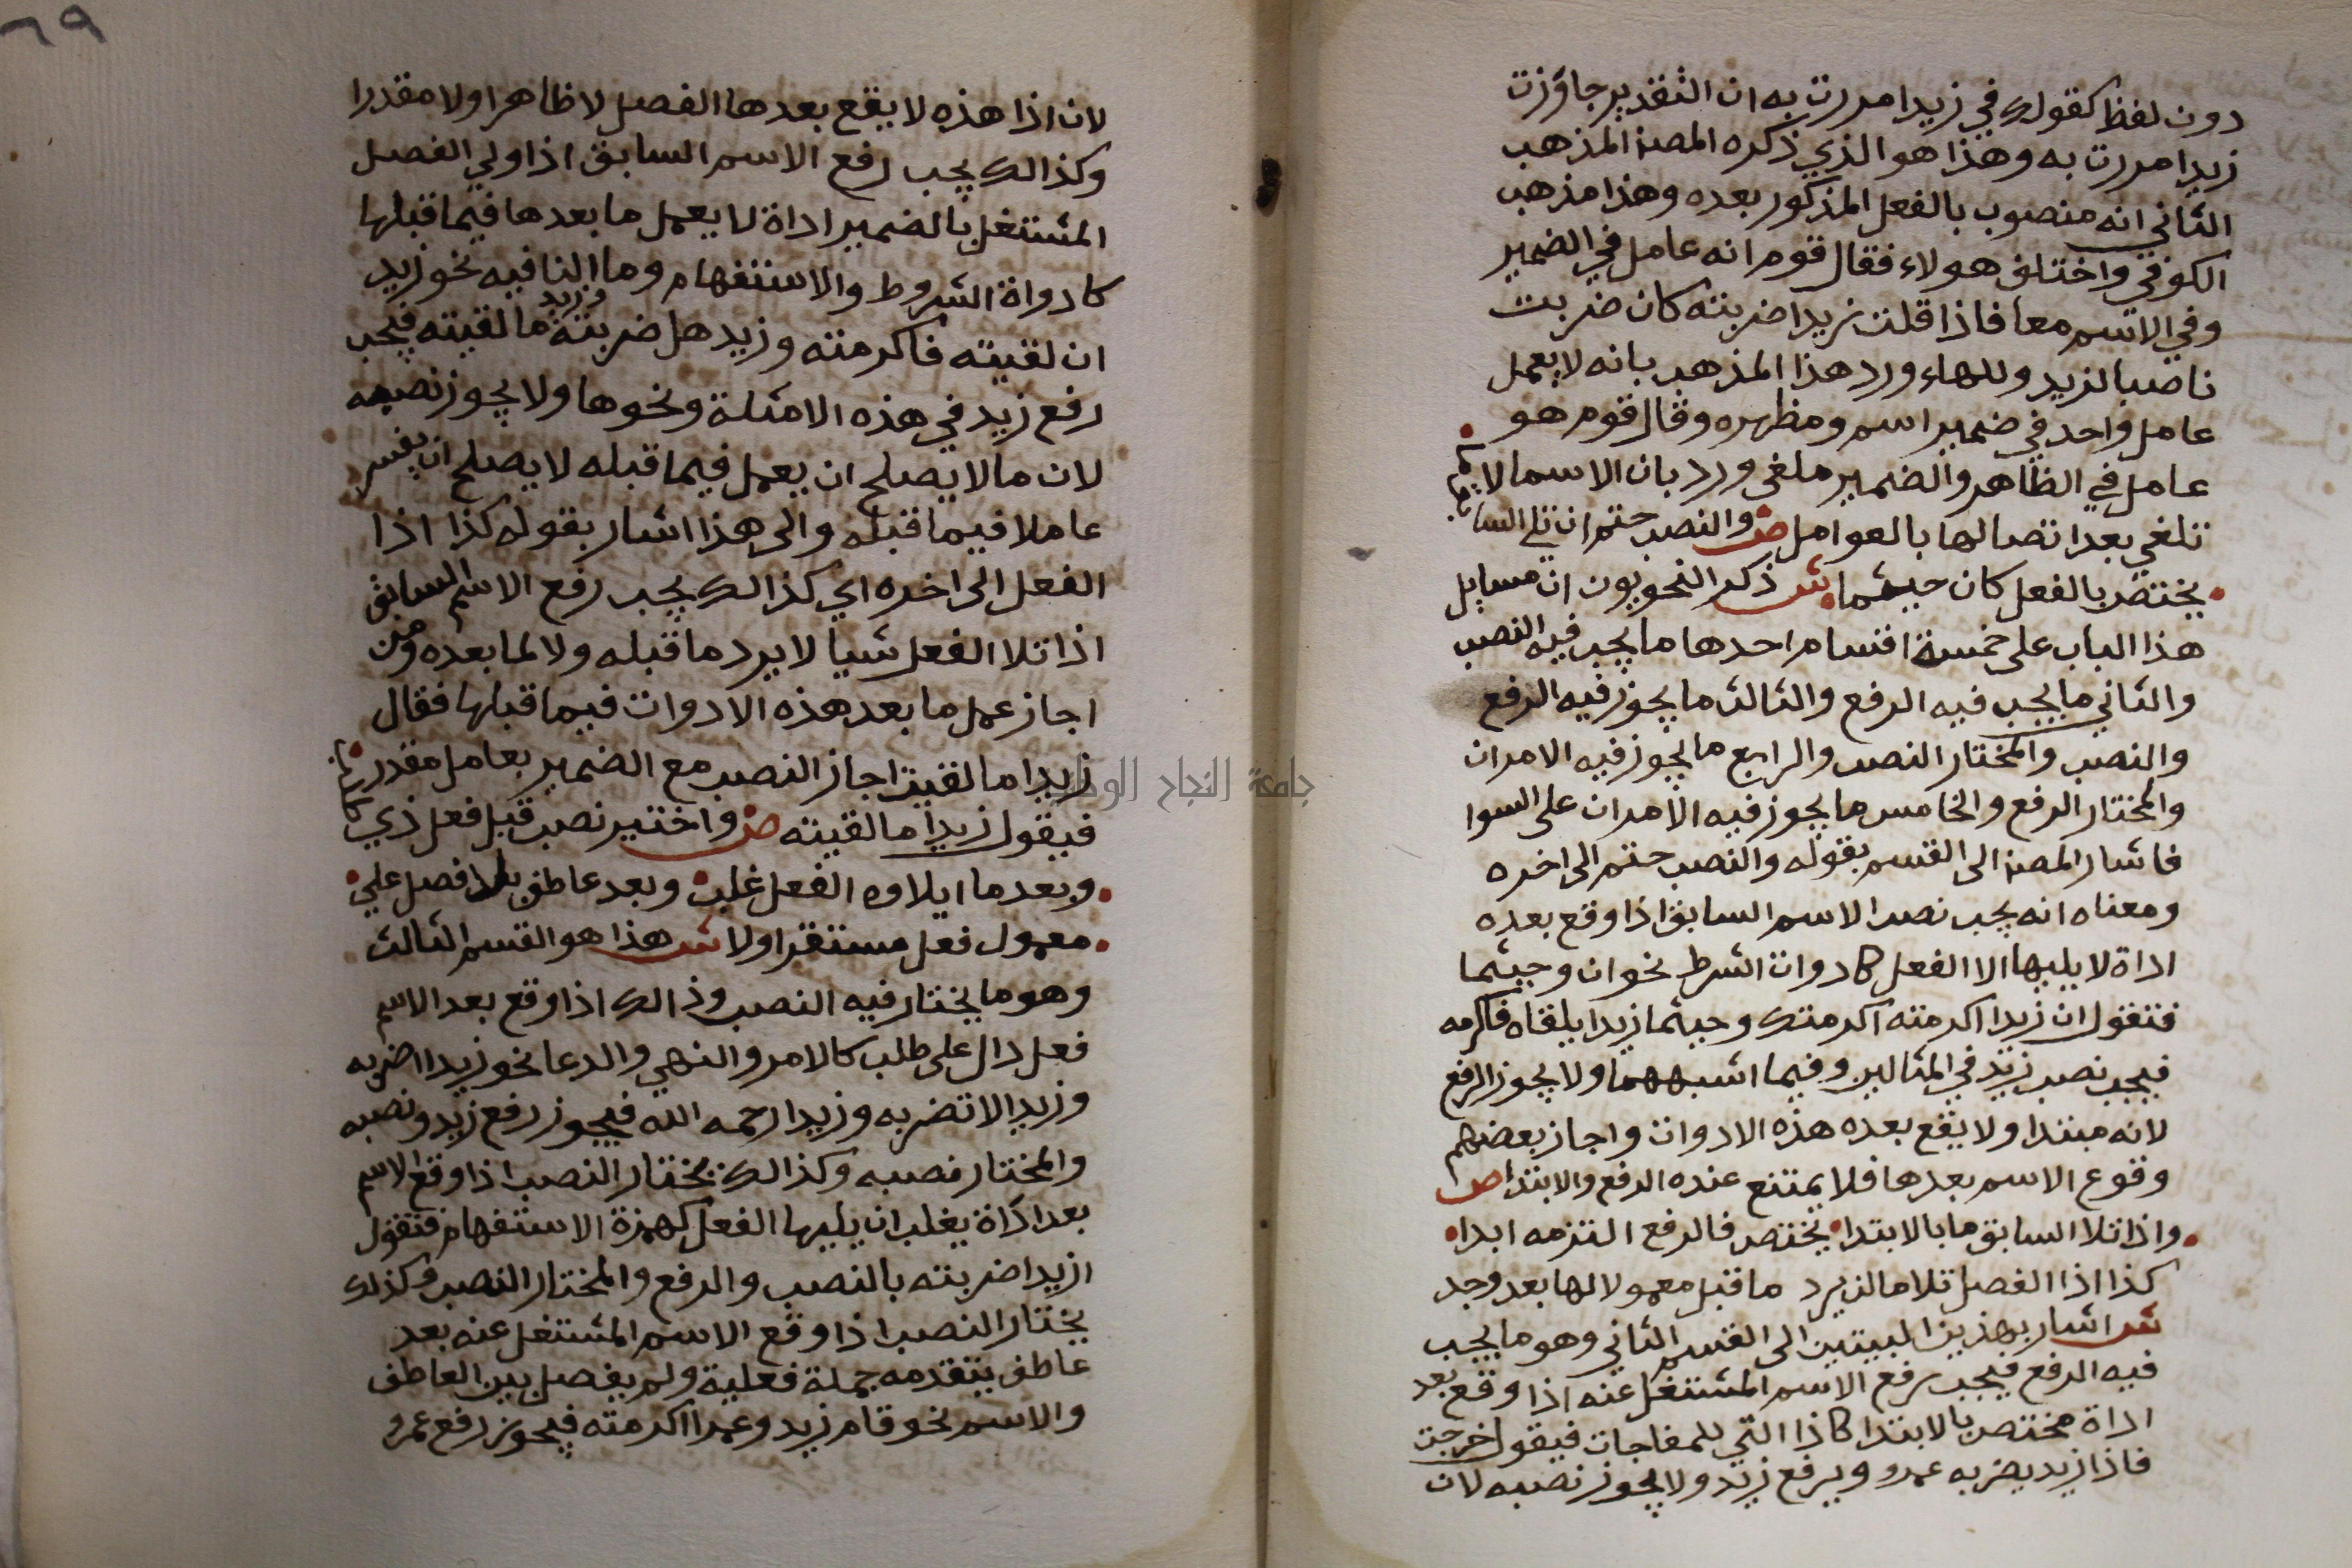 دون لفظ كقولك في زيدا مررت به ان التقدير جاوزت
زيدا مررت به وهذا هو الذي ذكره المصن المذهب
الثاني انه منصوب بالفعل المذكور بعده وهذا مذهب
الكوفي واختلف هولاء فقال قوم انه عامل في الضمير
وفي الاسم معا فاذا قلت زيدا ضربته كان ضربت
ناصبا لزيد وللهاء ورد هذا المذهب بانه لا يعمل
عامل واحد في ضمير اسم ومظهره وقال قوم هو
عامل في الظاهر والضمير ملغى ورد بان الاسما لا
تلغي بعد اتصالها بالعوامل ص والنصب حتم ان تلي السابق ما
يختص بالفعل كان حيثما ش ذكر النحويون ان مسايل
هذا الباب على خمسة اقسام احدها ما يجب فيه النصب
والثاني ما يجب فيه الرفع والثالث ما يجوز فيه الرفع
والنصب والمختار النصب والرابع ما يجوز فيه الامران
والمختار الرفع والخامس ما يجوز فيه الامران على السوا
فاشار المصن الى القسم بقوله والنصب حتم الى اخره
ومعناه انه يجب نصب الاسم السابق اذا وقع بعده
اداة لا يليها الا الفعل كادوات الشرط نحو ان وحيثما
فتقول ان زيدا اكرمته اكرمتك وحيثما زيدا يلقاه فاكرمه
فيجب نصب زيد في المثالين وفيما اشبههما ولا يجوز الرفع
لانه مبتدا ولا يقع بعده هذه الادوات واجاز بعضهم
وقوع الاسم بعدها فلا يمتنع عنده الرفع والابتدا ص
واذا تلا السابق ما بالابتدا يختص فالرفع التزمه ابدا
كذا اذا الفصل تلا ما لن يرد ما قبل معمولا لها بعد وجد
ش اشار بهذين البيتين الى القسم الثاني وهو ما يجب
فيه الرفع فيجب رفع الاسم المشتغل عنه اذا وقع بعد
اداة مختص بالابتدا كاذا التي للمفاجات فيقول خرجت
فاذا زيد يضربه عمرو ويرفع زيد ولا يجوز نصبه لان
٦٩
لان اذا هذه لا يقع بعدها الفصل لا ظاهرا ولا مقدرا
وكذالك يجب رفع الاسم السابق اذا ولي الفصل
المشتغل بالضمير اداة لا يعمل ما بعدها فيما قبلها
كادواة الشروط والاستفهام وما النافيه نحو زيد
ان لقيته فاكرمته وزيد هل ضربته وزيد ما لقيته فيجب
رفع زيد في هذه الامثلة ونحوها ولا يجوز نصبه
لان ما لا يصلح ان يعمل فيما قبله لا يصلح ان يفسر
عاملا فيما قبله والى هذا اشار بقوله كذا اذا
الفعل الى اخره اي كذالك يجب رفع الاسم السابق
اذا تلا الفعل شيا لا يرد ما قبله ولا لما بعده ومن
اجاز عمل ما بعد هذه الادوات فيما قبلها فقال
زيدا ما لقيت اجاز النصب مع الضمير بعامل مقدر
فيقول زيدا ما لقيته ص واختير نصب قبل فعل ذي طلب
وبعد ما ايلاوه الفعل غلب وبعد عاطف بلا فصل على
معمول فعل مستقر اولا ش هذا هو القسم الثالث
وهو ما يختار فيه النصب وذالك اذا وقع بعد الاسم
فعل دال على طلب كالامر والنهي والدعا نحو زيدا اضربه
وزيد الا تضربه وزيدا رحمه الله فيجوز رفع زيد ونصبه
والمختار نصبه وكذالك يختار النصب اذا وقع الاسم
بعد اداة يغلب ان يليها الفعل كهمزة الاستفهام فتقول
ازيدا ضربته بالنصب والرفع والمختار النصب وكذلك
يختار النصب اذا وقع الاسم المشتغل عنه بعد
عاطف يتقدمه جملة فعلية ولم يفصل بين العاطف
والاسم نحو قام زيد وعمرا اكرمته فيجوز رفع عمرو